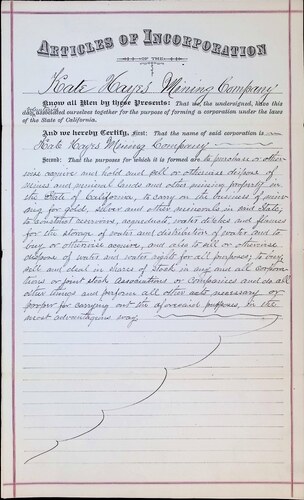 ARTICLES OF INCORPORATION
OF THE
Kate Hayes Mining Company
Know all Men by these Presents: That we, the undersigned, have this
day associated ourselves together for the purpose of forming a corporation under the laws
of the State of California.
And we hereby Certify, First: That the name of said corporation is
Kate Hayes Mining Company
Second: That the purposes for which it is formed are to purchase or other-
wise acquire and hold and sell or otherwise dispose of
mines and mineral lands and other mining property in
the State of California, to carry on the business of min-
ing for gold, silver and other minerals in said State;
to construct reservoirs, aqueducts, water ditches and flumes
for the storage of water and distribution of water and to
buy or otherwise acquire, and also to sell or otherwise
dispose of water and water rights for all purposes; to buy
sell and deal in shares of stock in any and all corpora-
tions or joint stock associations or companies and do all
other things and perform all other acts necessary or
proper for carrying out the aforesaid purposes, in the
most advantageous way